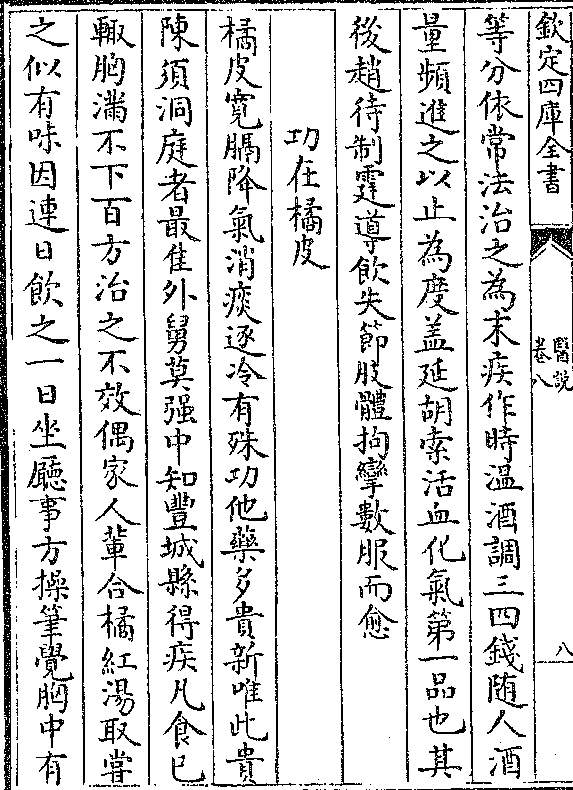 欽定四庫全書
醫說
卷八
八
等分依常法治之為末疾作時溫酒調三四錢随人酒
量頻進之以止為度盖延胡索活血化氣第一品也其
後趙待制霆導飲失節肢體拘攣數服而愈
功在橘皮
橘皮寬膈降氣消痰逐冷有殊功他藥多貴新唯此貴
陳須洞庭者最佳外舅莫强中知豐城縣得疾凡食已
輙胸滿不下百方治之不效偶家人軰合橘紅湯取嘗
之似有味因連日飲之一日坐廳事方操筆覺胸中有